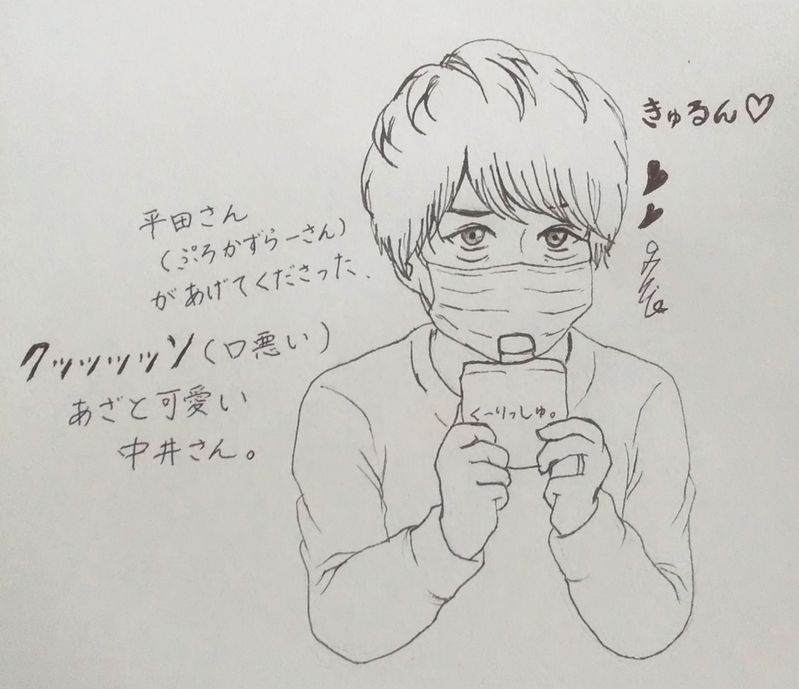 きゅるん♡
平田さん
(ぷろかずらーさん)
があげてくださった、
クッッッッソ(口悪い)
あざと可愛い
中井さん。
くーりっしゅ。